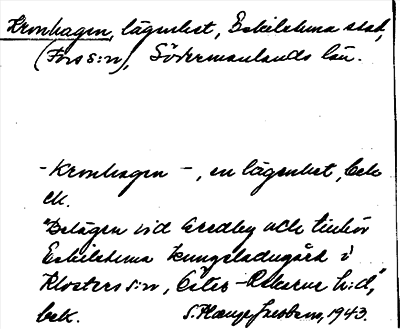 Kronhagen, lägenhet, Eskilstuna stad,
(Fors s:n), Södermanlands län.
-Kronhagen -, en lägenhet, bebo
ck.
"Belägen vid Gredby och tillhör
Eskilstuna kungsladugård i
Klosters s:n, Öster-Rekarne h:d",
bek. 1943.